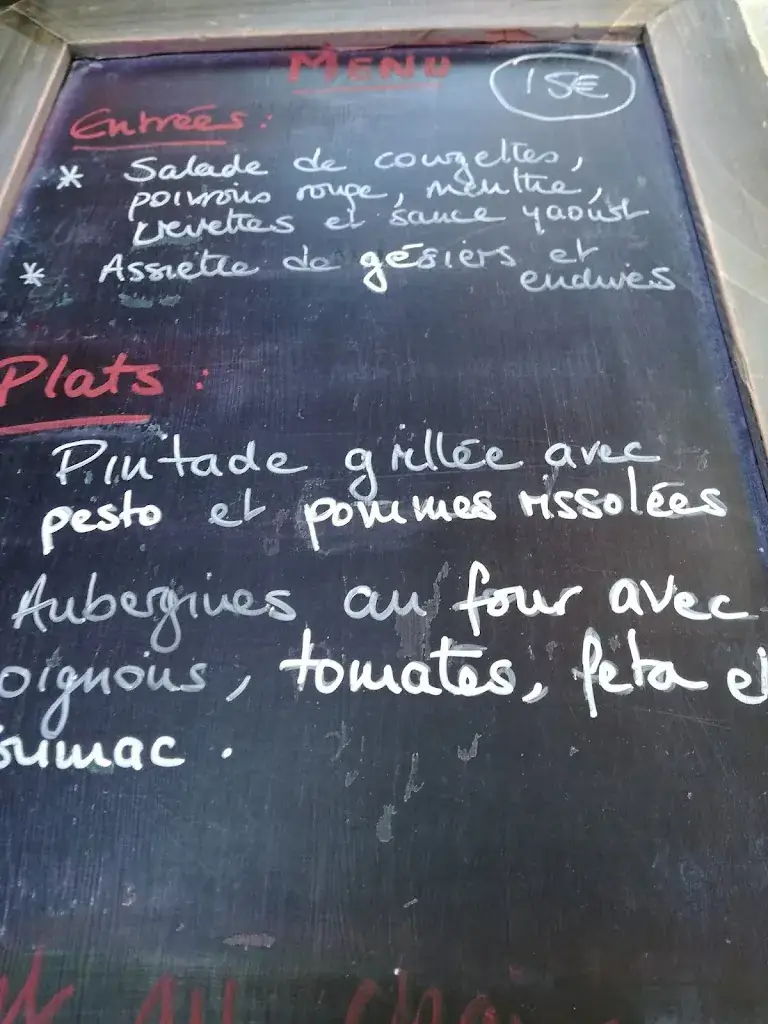 MENU 15€
Entrées :
* Salade de courgettes,
poivrons rouge, menthe,
crevettes et sauce yaourt
* Assiette de gésiers et
endives
Plats :
Pintade grillée avec
pesto et pommes rissolées
Aubergines au four avec
oignons, tomates, feta et
sumac .
au choi